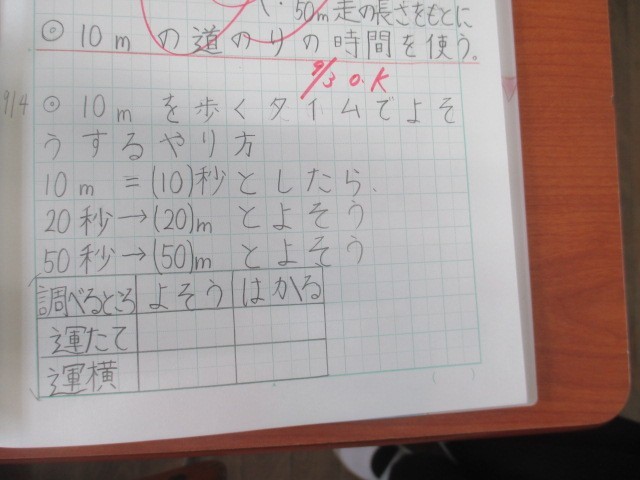 50m走の長さをもとに
◎10mの道のりの時間を使う。
9/3 O.K
9/4 ◎10mを歩くタイムでよそ
うするやり方
10m=(10)秒としたら、
20秒→(20)mとよそう
50秒→(50)mとよそう
調べるところ よそう はかる
運たて
運横